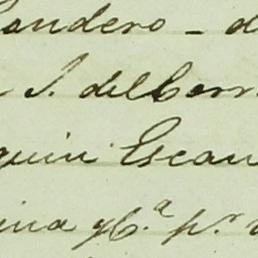 candero - d
S. del Corr
quin Escan
ina y C.ª p.r